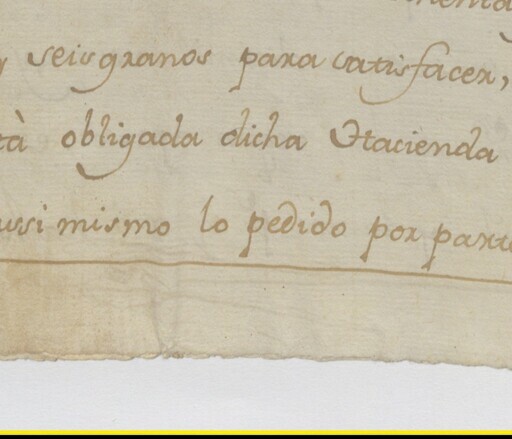 y seis granos para satisfacer,
tà obligada dicha Hacienda
ussi mismo lo pedido por parte